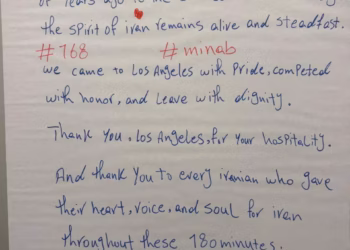 of years ago to the
the spirit of iran remains alive and steadfast.
#168 #minab
we came to Los Angeles with Pride, competed
with honor, and leave with dignity.
Thank you, Los Angeles, for your hospitality.
And thank you to every iranian who gave
their heart, voice, and soul for iran
throughout these 180 minutes.